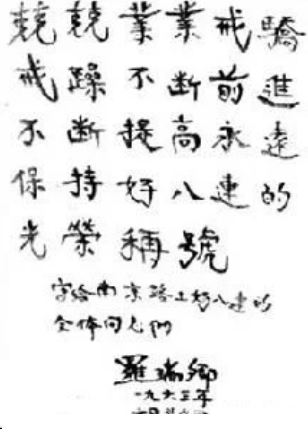 兢兢業業戒驕
戒躁不断前進
不断提高永遠
保持好八連的
光榮稱號
写给南京路上好八連的
全体同志們
羅瑞卿
一九六三年